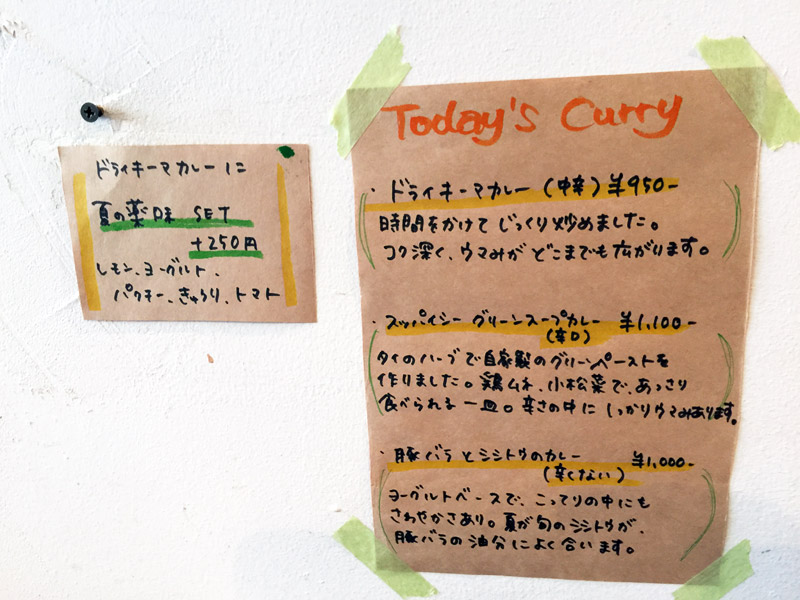 ドライキーマカレーに
夏の薬味 SET
+250円
レモン、ヨーグルト、
パクチー、きゅうり、トマト
Today's Curry
・ドライキーマカレー (中辛) ¥950-
時間をかけてじっくり炒めました。
コク深く、ウマみがどこまでも広がります。
・スッパイシーグリーンスープカレー ¥1,100-
(辛口)
タイのハーブで自家製のグリーンペーストを
作りました。鶏ムネ、小松菜で、あっさり
食べられる一皿。辛さの中にしっかりウマみあります。
・豚バラとシシトウのカレー ¥1,000-
(辛くない)
ヨーグルトベースで、こってりの中にも
さわやかさあり。夏が旬のシシトウが、
豚バラの油分によく合います。